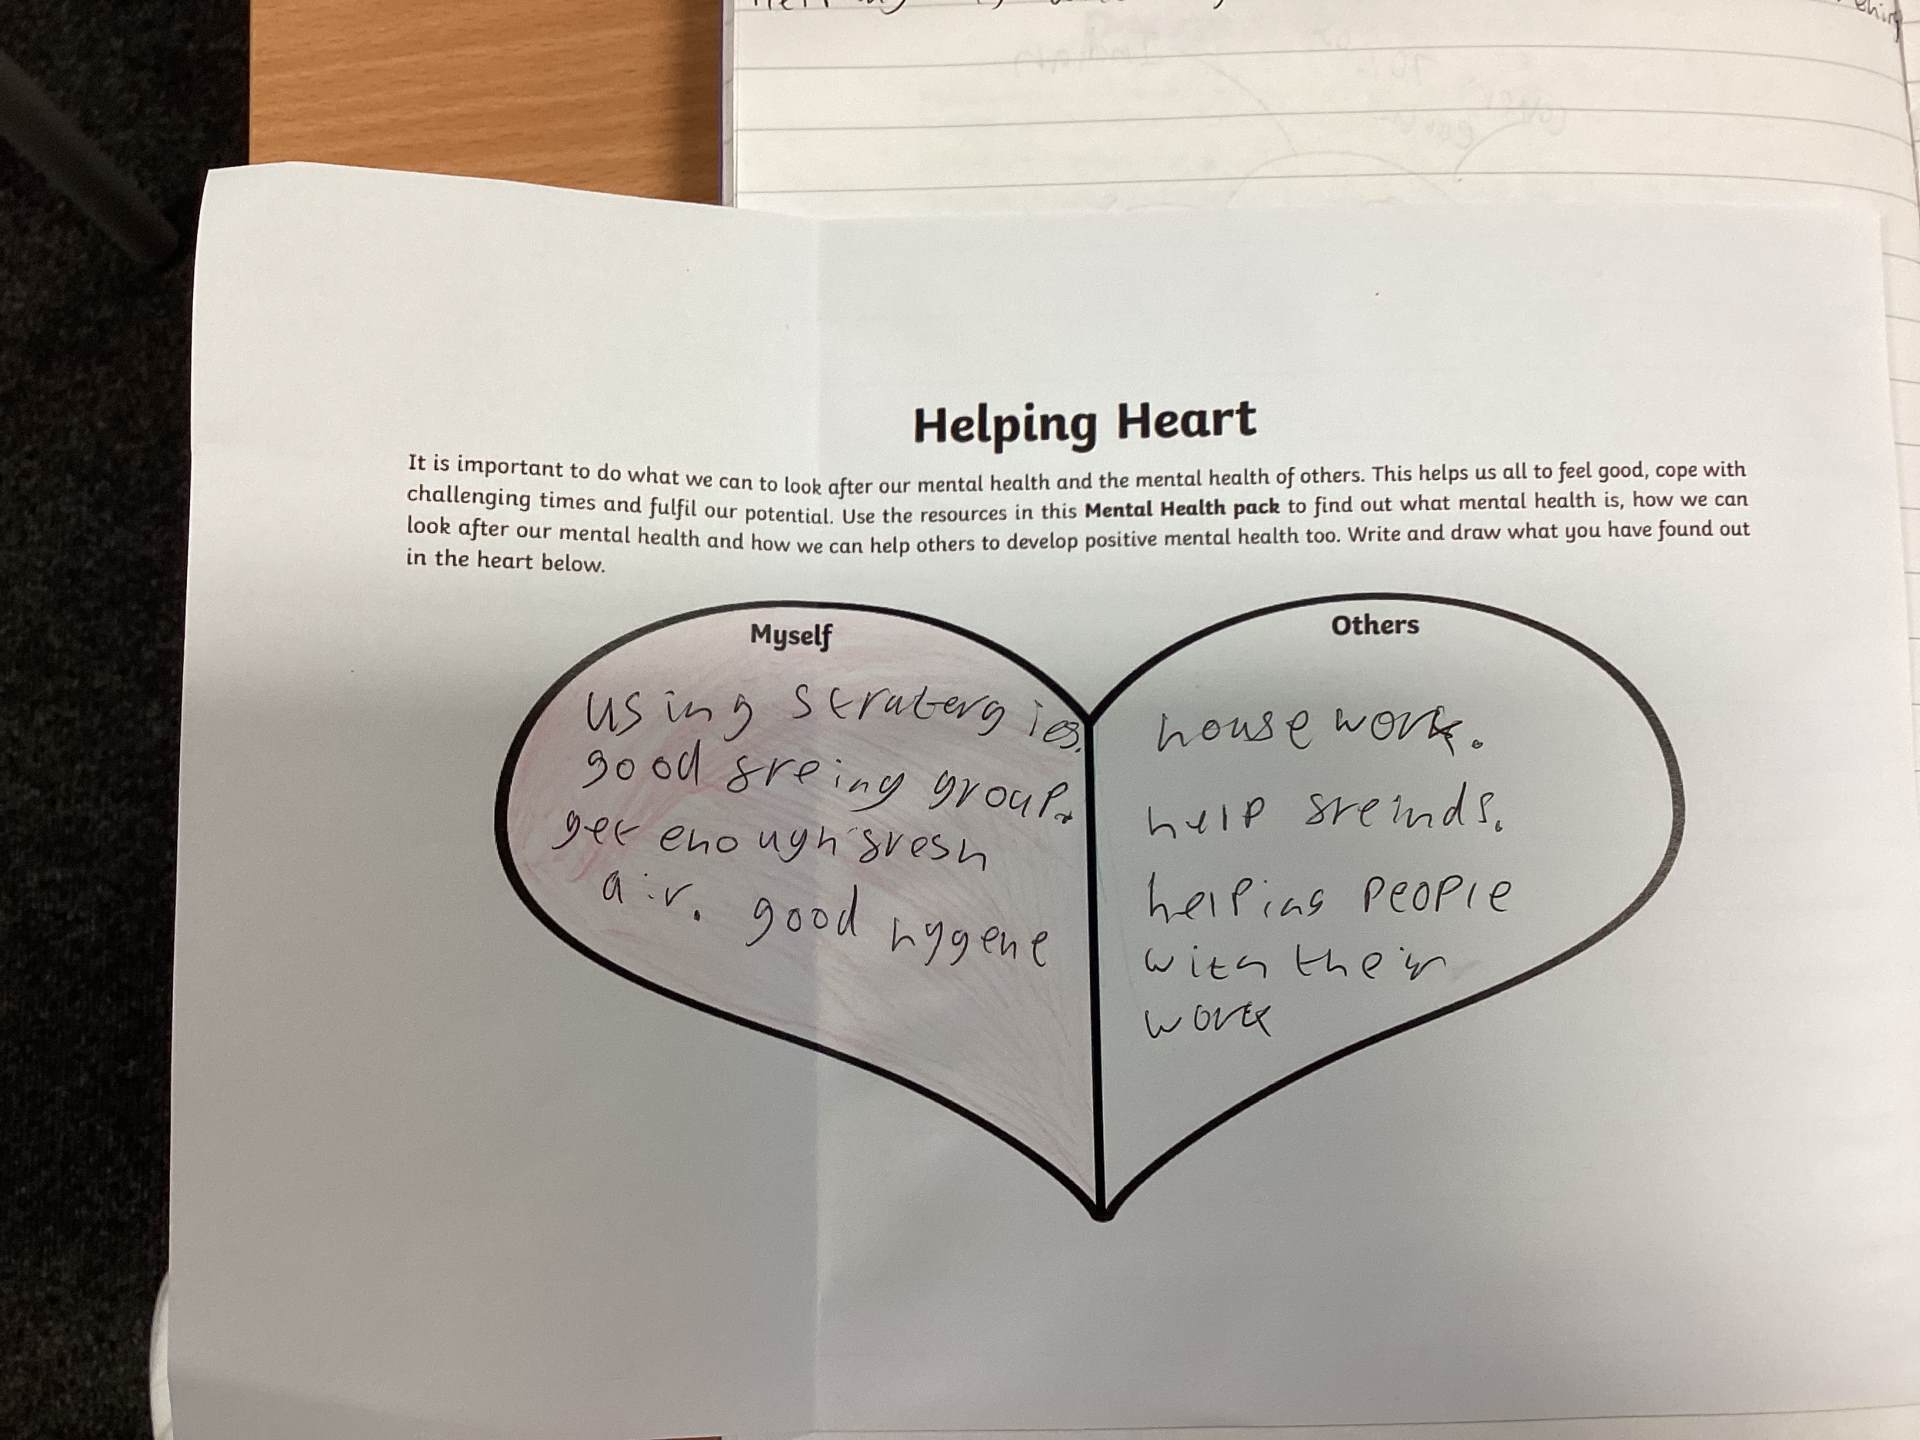 Helping Heart
It is important to do what we can to look after our mental health and the mental health of others. This helps us all to feel good, cope with
challenging times and fulfil our potential. Use the resources in this Mental Health pack to find out what mental health is, how we can
look after our mental health and how we can help others to develop positive mental health too. Write and draw what you have found out
in the heart below.
Myself
using stratergies.
good freing group.
get enough fresh
air. good hygene
Others
house work.
help freinds.
helping people
with their
work